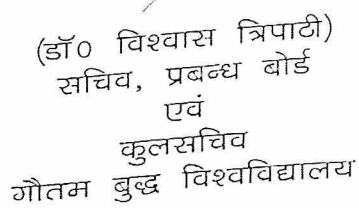 (डॉ0 विश्वास त्रिपाठी)
सचिव, प्रबन्ध बोर्ड
एवं
कुलसचिव
गौतम बुद्ध विश्वविद्यालय